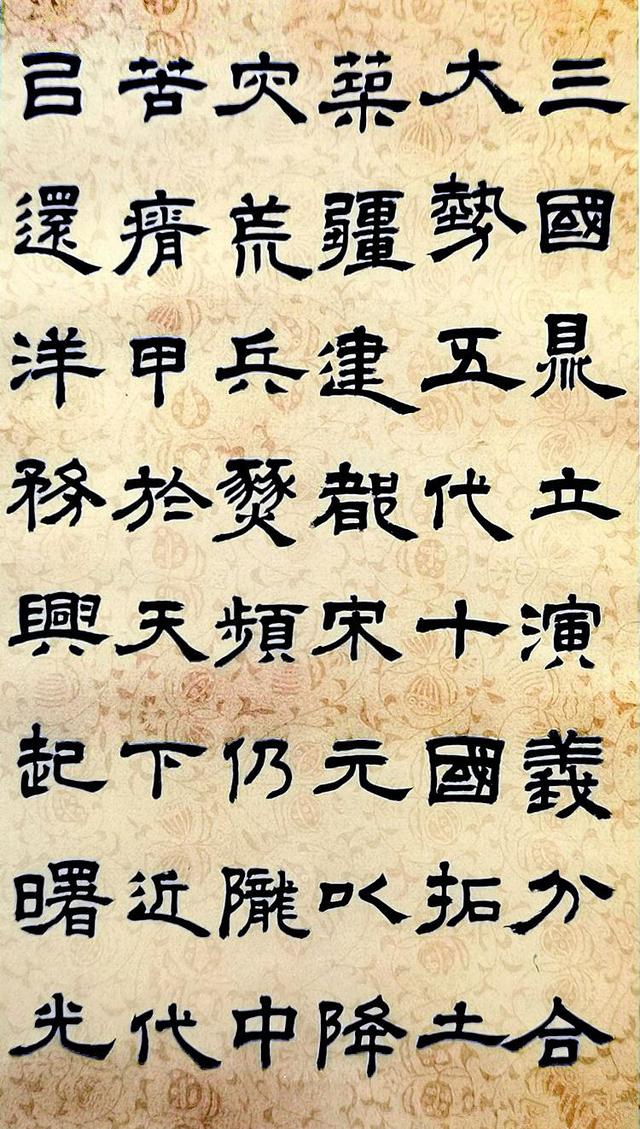 三國鼎立演義分合
大勢五代十國拓土
築疆建都宋元以降
灾荒兵燹頻仍隴中
苦瘠甲於天下近代
㠯還洋務興起曙光